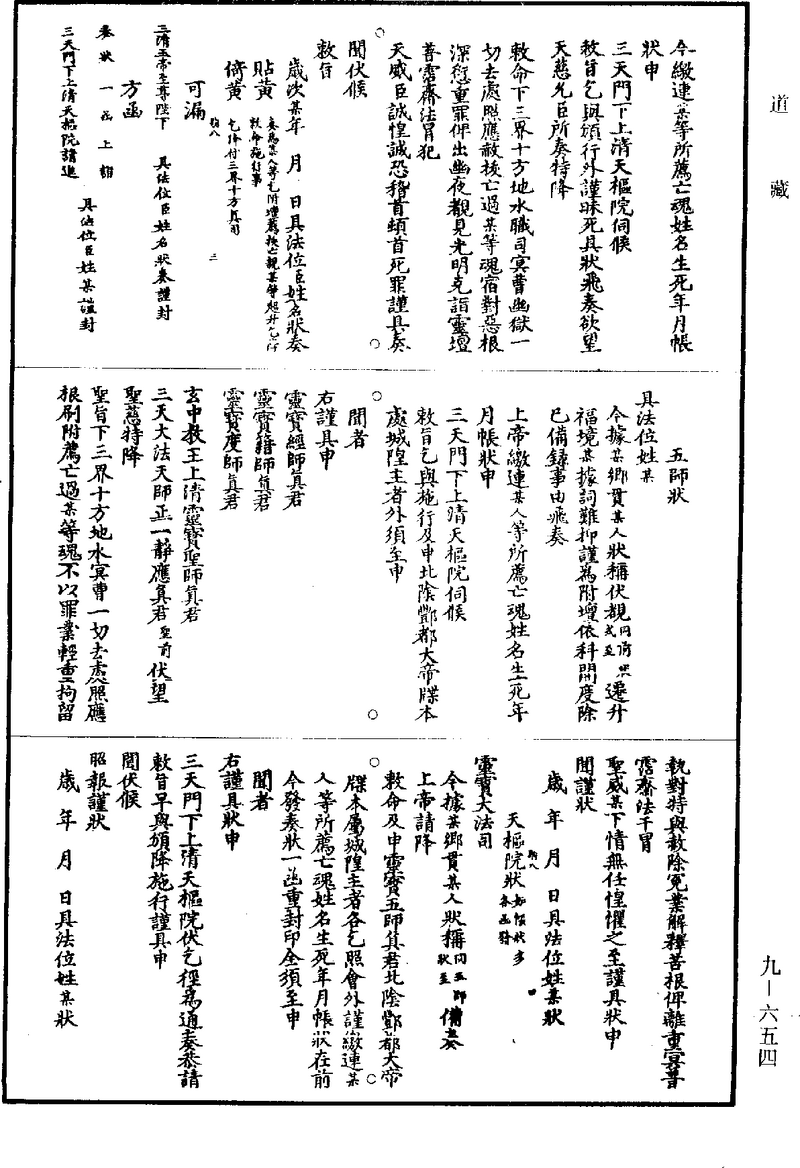 道藏
今繳連某等所薦亡魂姓名生死年月帳
狀申
三天門下上清天樞院伺候
敕旨乞與頒行外謹昧死具狀飛奏欲望
天慈允臣所奏特降
敕命下三界十方地水職司冥曹幽獄一
切去處照應赦拔亡過某等魂宿對惡根
深愆重罪俾出幽夜覩見光明克詣靈壇
普霑齋法冒犯
天威臣誠惶誠恐稽首頓首死罪謹具奏
聞伏候
敕旨
歲次某年 月 日具法位臣姓名狀奏
貼黃
倚黃 乞降付三界十方真司
可漏
三清玉帝至尊陛下 具法位臣姓名狀奏謹封
方函
奏狀一函上詣
三天門下上清天樞院請進 具法位臣姓某謹封
五師狀
具法位姓某
今據某鄉貫某人狀稱伏覩同前式至遷升
福境某據詞難抑謹為附壇依科開度除
已備錄事由飛奏
上帝繳連某人等所薦亡魂姓名生死年
月帳狀申
三天門下上清天樞院伺候
敕旨乞與施行及申北陰酆都大帝牒本
處城隍主者外須至申
聞者
右謹具申
靈寶經師真君
靈寶籍師真君
靈寶度師真君
玄中教主上清靈寶聖師真君
三天大法天師正一靜應真君聖前伏望
聖慈特降
聖旨下三界十方地水冥曹一切去處照應
根刷附薦亡過某等魂不以罪業輕重拘留
執對特與赦除冤業解釋苦根俾離重冥普
霑齋法干冒
聖威某下情無任惶懼之至謹具狀申
聞謹狀
歲 年 月 日具法位姓某狀
天樞院狀
靈寶大法司
今據某鄉貫某人狀稱同五師狀至備奏
上帝請降
敕命及申靈寶五師真君北陰酆都大帝
牒本屬城隍主者各乞照會外謹繳連某
人等所薦亡魂姓名生死年月帳狀在前
今發奏狀一函重封印全須至申
聞者
右謹具狀申
三天門下上清天樞院伏乞徑為通奏恭請
敕旨早與頒降施行謹具申
聞伏候
昭報謹狀
歲 年 月 日具法位姓某狀
九－六五四